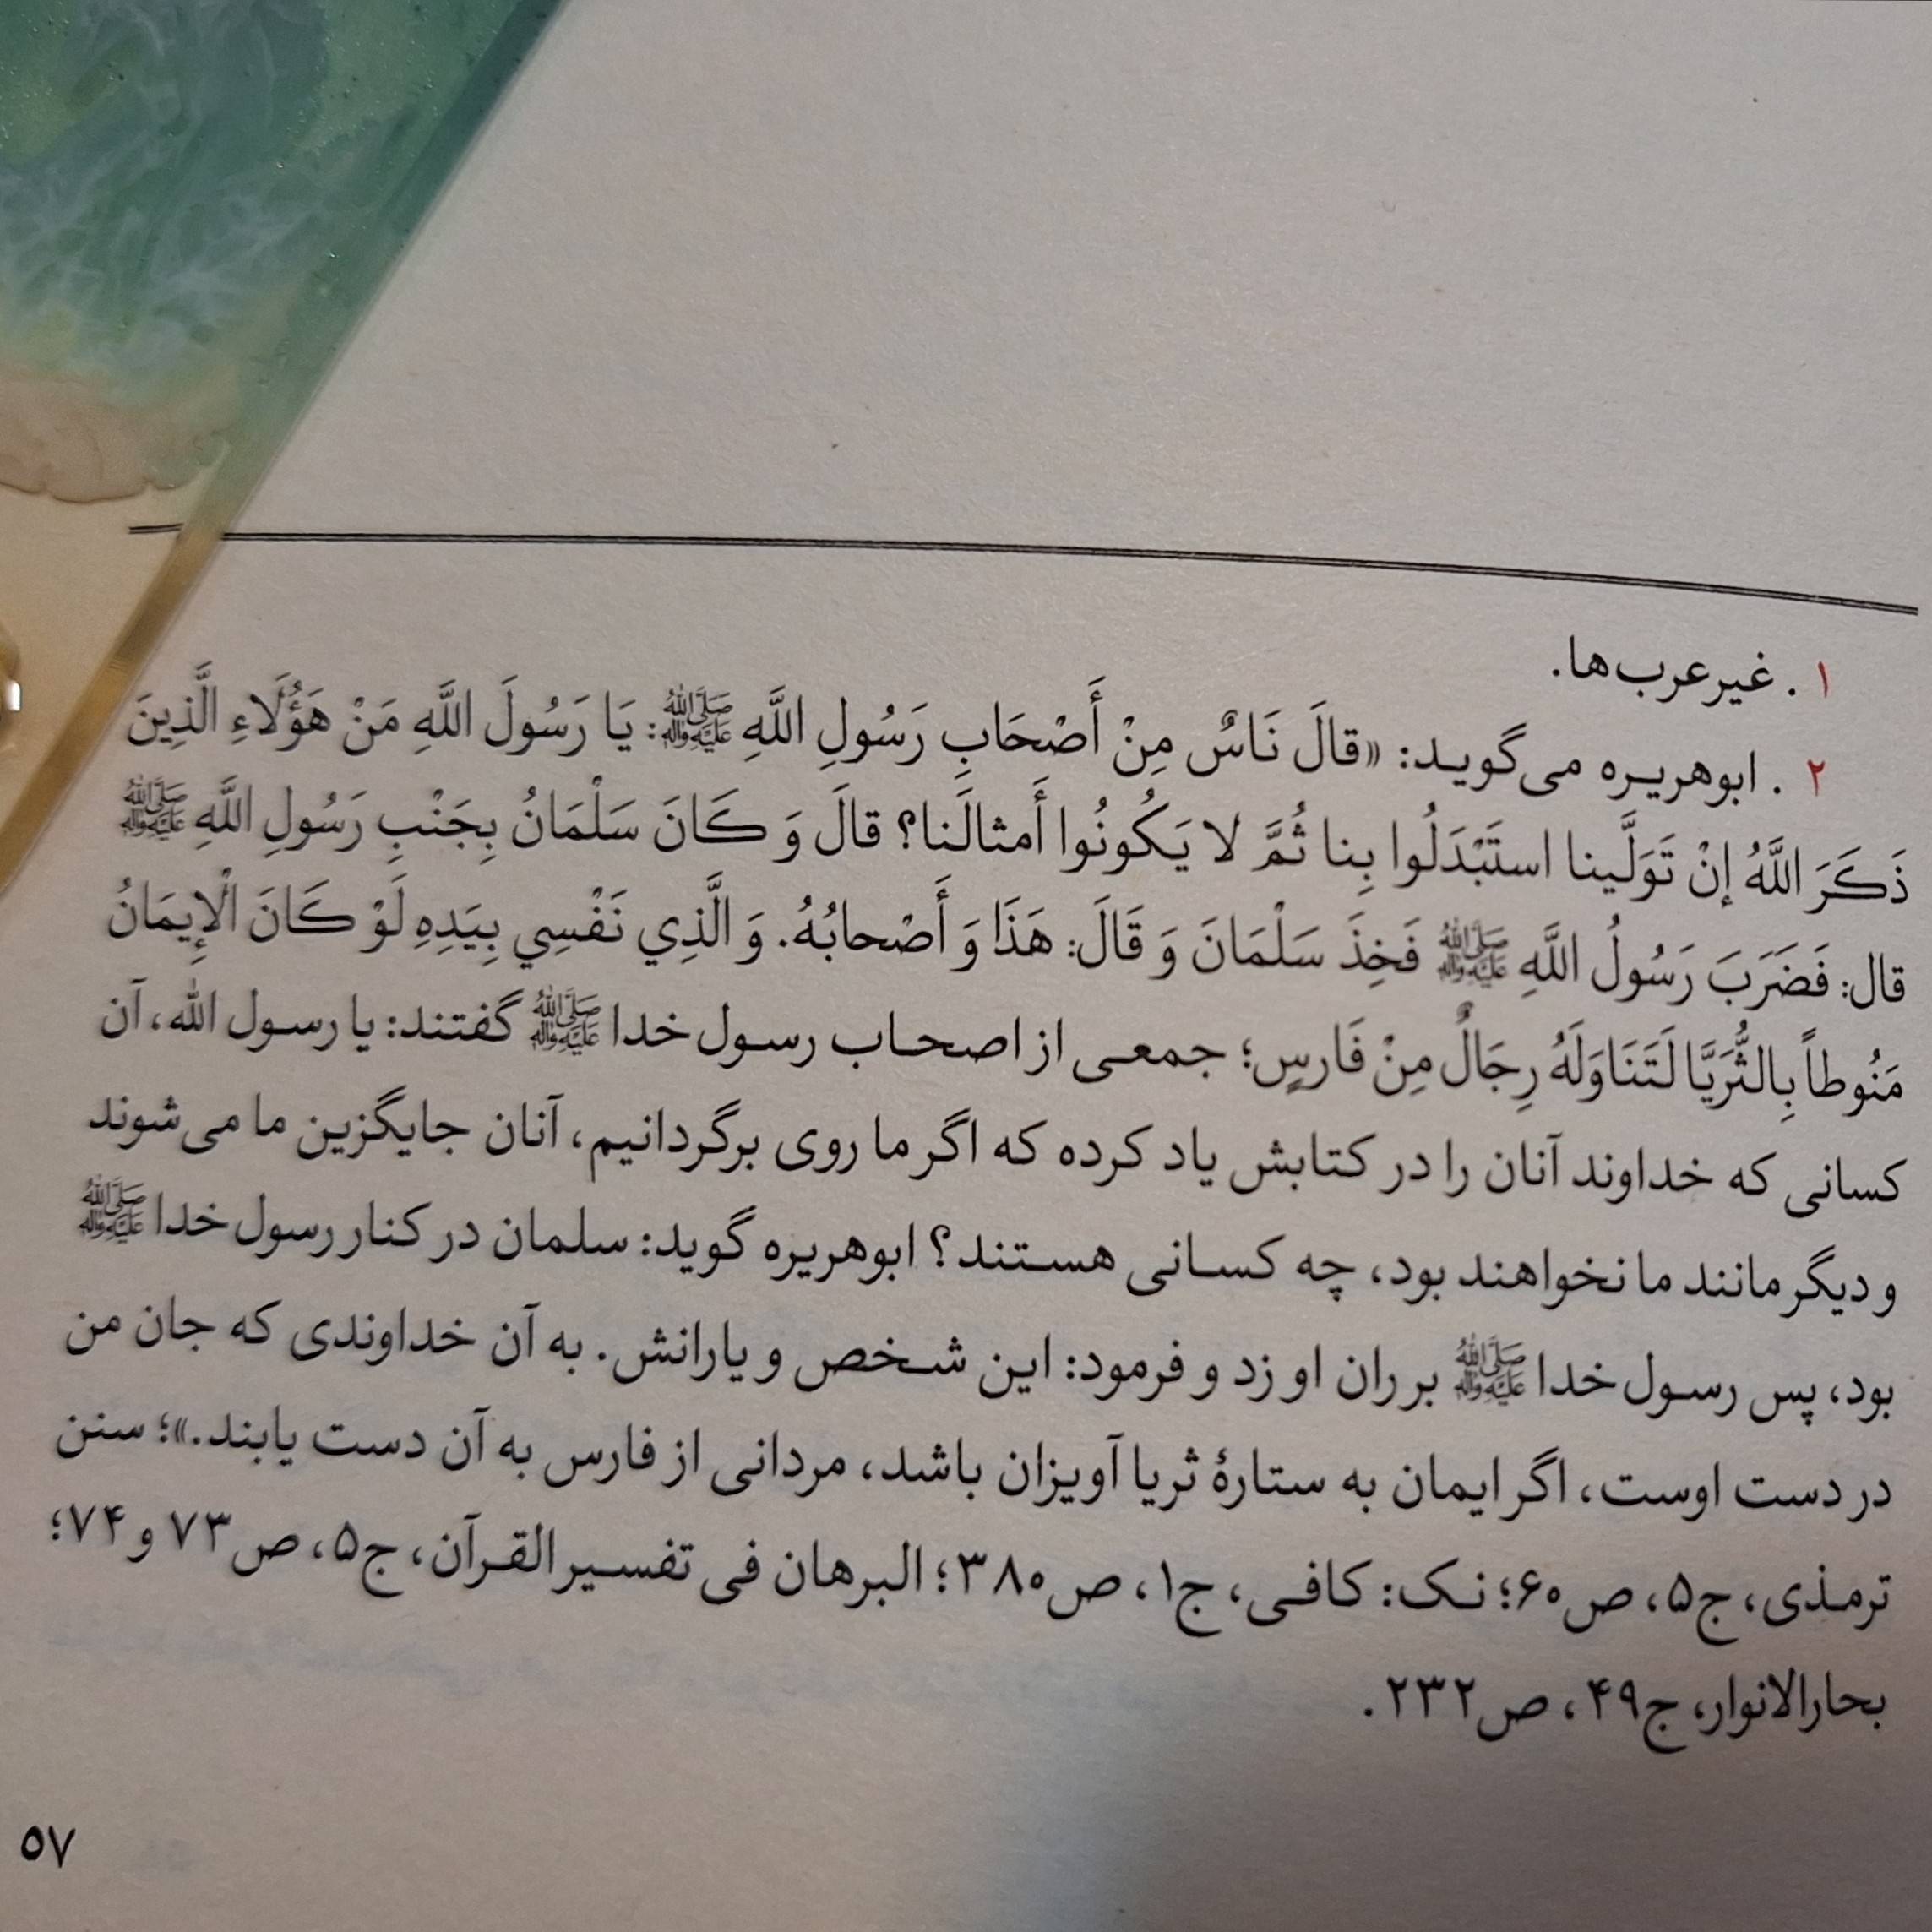 ۱ . غیرعرب‌ها.
۲ . ابوهریره می‌گوید: «قالَ نَاسٌ مِنْ أَصْحَابِ رَسُولِ اللَّهِ ﷺ: يَا رَسُولَ اللَّهِ مَنْ هَؤُلَاءِ الَّذِينَ
ذَكَرَ اللَّهُ إنْ تَوَلَّينا استَبْدَلُوا بِنا ثُمَّ لا يَكُونُوا أَمثالَنا؟ قالَ وَ كَانَ سَلْمَانُ بِجَنْبِ رَسُولِ اللَّهِ ﷺ
قال: فَضَرَبَ رَسُولُ اللَّهِ ﷺ فَخِذَ سَلْمَانَ وَ قَالَ: هَذَا وَ أَصْحابُهُ. وَ الَّذِي نَفْسِي بِيَدِهِ لَوْ كَانَ الْإِيمَانُ
مَنُوطاً بِالثُّرَيَّا لَتَنَاوَلَهُ رِجَالٌ مِنْ فَارِسٍ؛ جمعی از اصحاب رسول خدا ﷺ گفتند: یا رسول الله، آن
کسانی که خداوند آنان را در کتابش یاد کرده که اگر ما روی برگردانیم، آنان جایگزین ما می‌شوند
و دیگر مانند ما نخواهند بود، چه کسانی هستند؟ ابوهریره گوید: سلمان در کنار رسول خدا ﷺ
بود، پس رسول خدا ﷺ بر ران او زد و فرمود: این شخص و یارانش. به آن خداوندی که جان من
در دست اوست، اگر ایمان به ستارهٔ ثریا آویزان باشد، مردانی از فارس به آن دست یابند.»؛ سنن
ترمذی، ج۵، ص۶۰؛ نک: کافی، ج۱، ص۳۸۰؛ البرهان فی تفسیر القرآن، ج۵، ص۷۳ و ۷۴؛
بحارالانوار، ج۴۹، ص۲۳۲.
۵۷